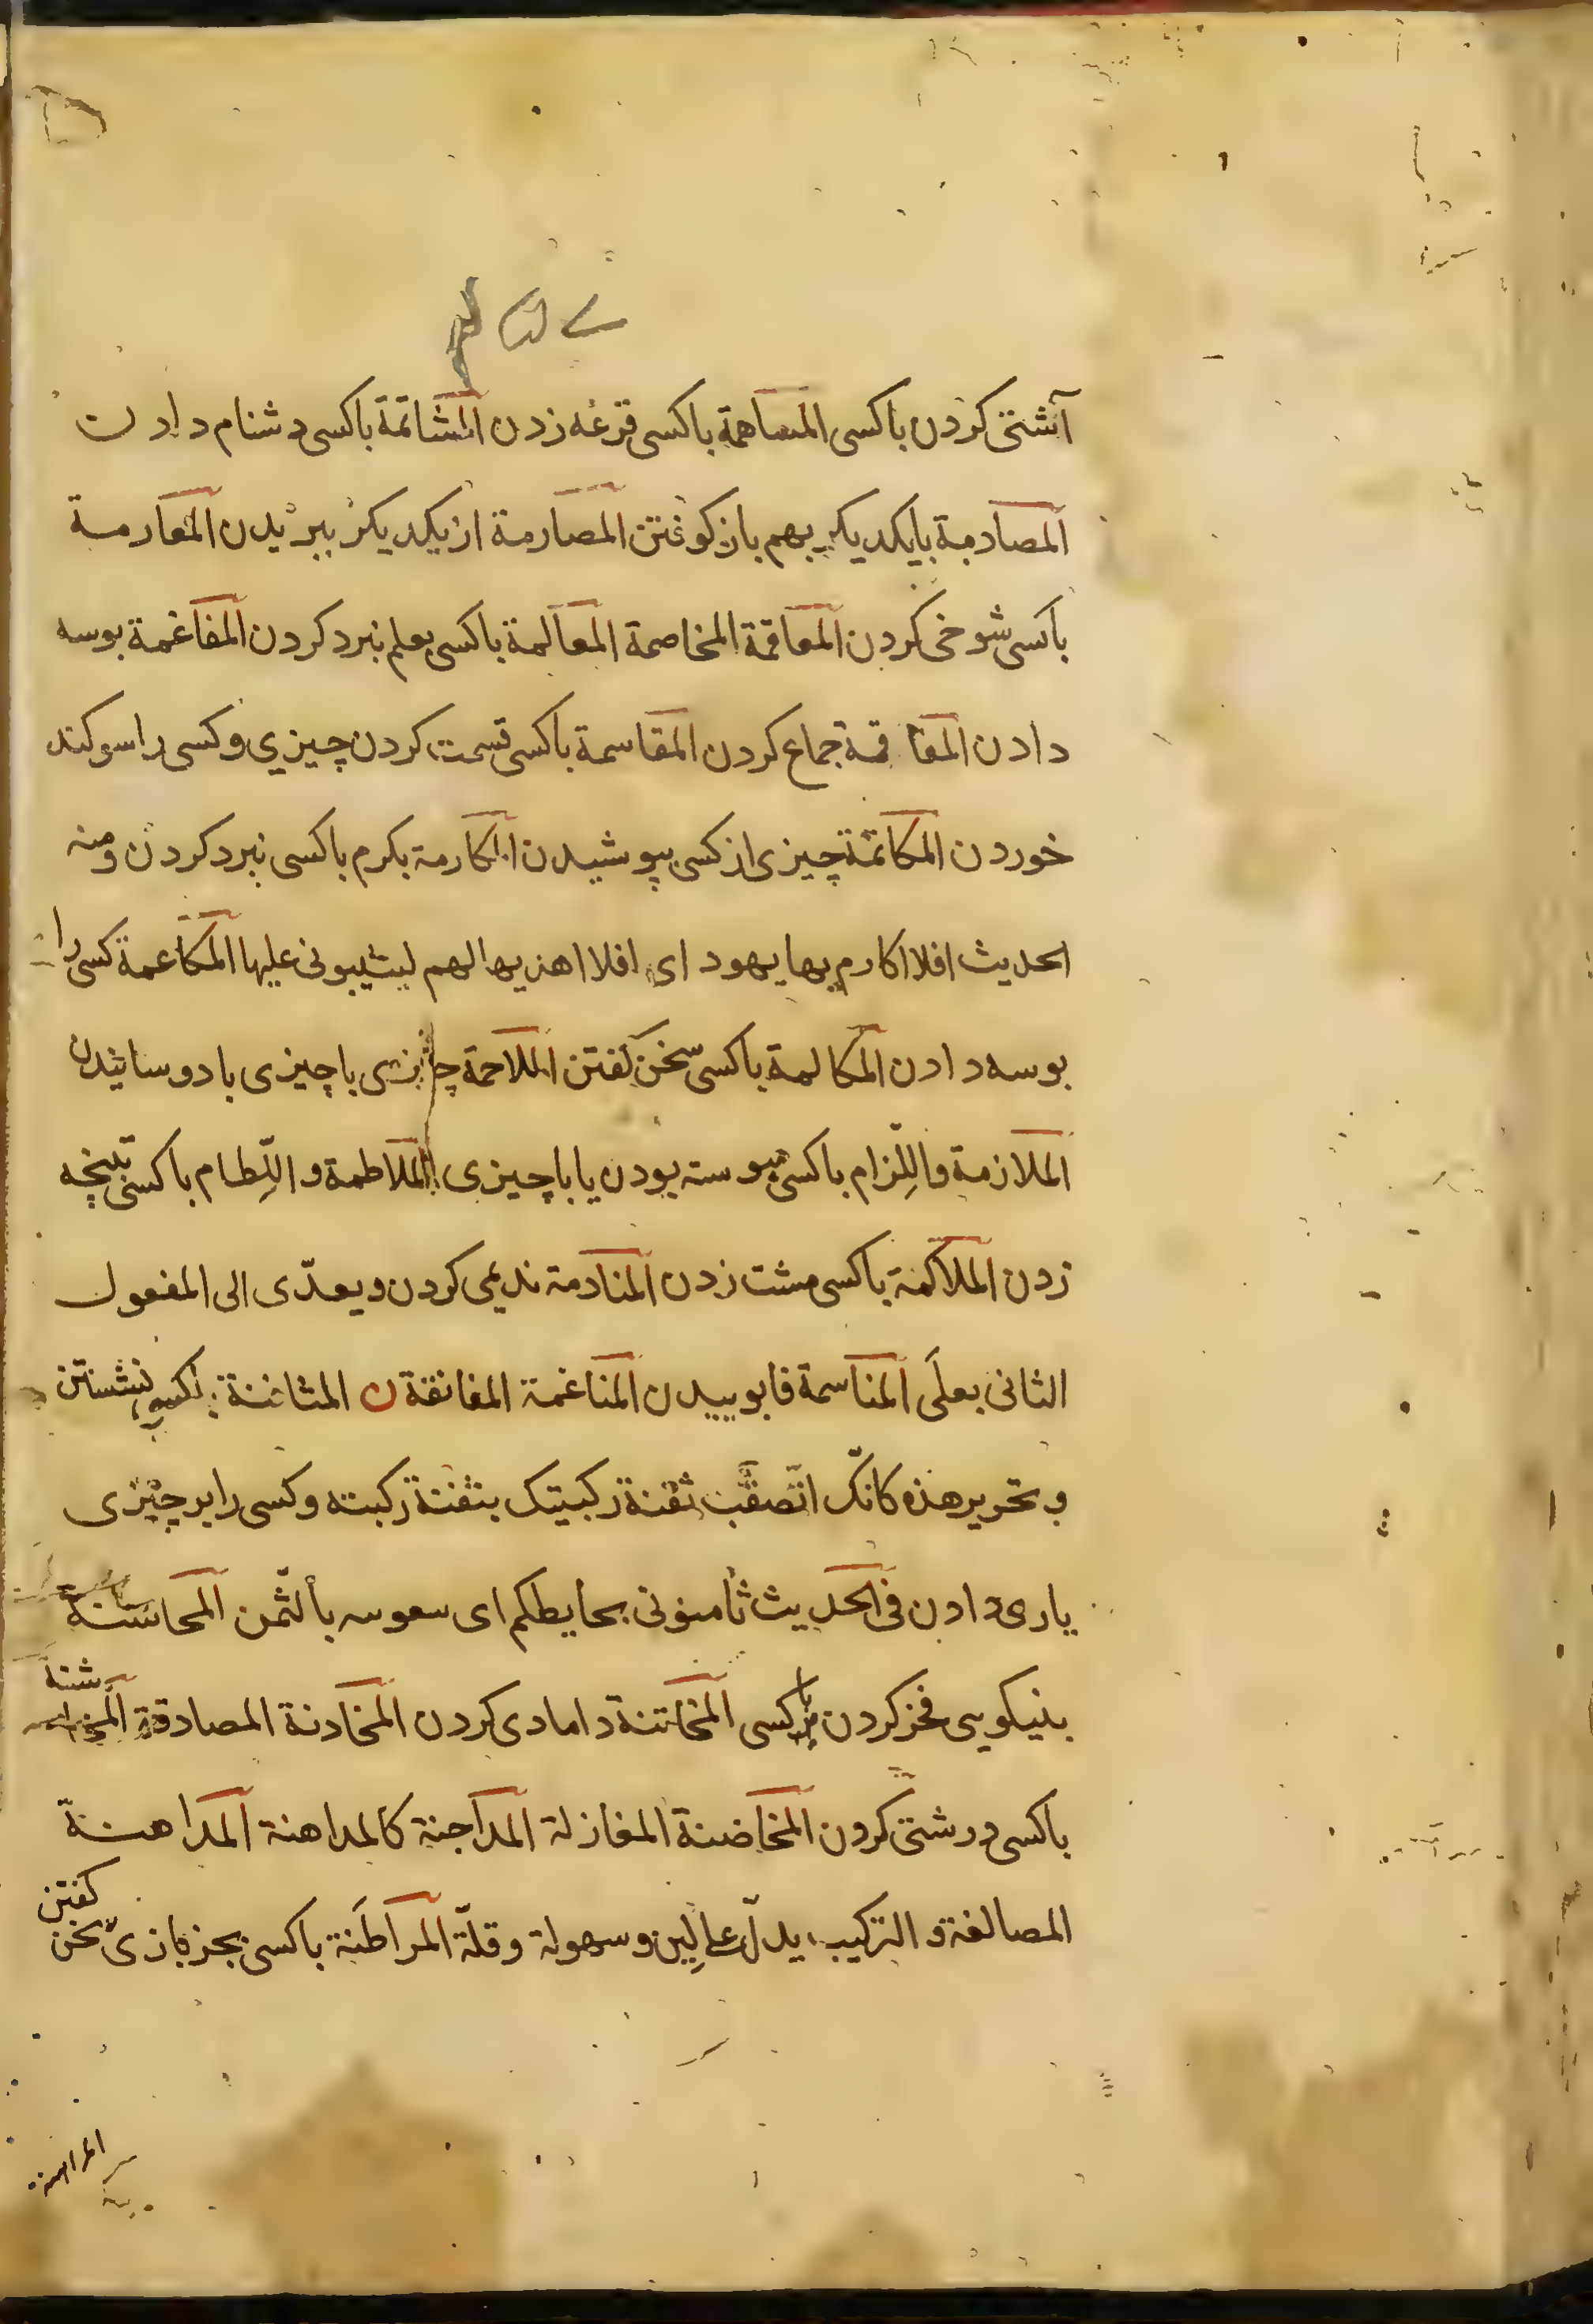 آشتی کردن باکسی المساهمة باکسی قرعه زدن المشاتمة باکسی دشنام دادن
المصادمة بایکدیکر بهم بازکوفتن المصارمة از یکدیکر ببریدن المعارمة
باکسی شوخی کردن المعاقمة المخاصمة المعالمة باکسی بعلم نبرد کردن المفاغمة بوسه
دادن المفاقمة جماع کردن المقاسمة باکسی قسمت کردن چیزی وکسی را سوکند
خوردن المکاتمة چیزی از کسی بپوشیدن المکارمة بکرم باکسی نبرد کردن ومنه
الحدیث افلا اکارم بها یهود ای افلا اهدیها الهم لیثیبونی علیها المکاعمة کسی را
بوسه دادن المکالمة باکسی سخن کفتن الملاحمة چیزی باچیزی بادوسانیدن
الملازمة واللِّزام باکسی پیوسته بودن یا باچیزی الملاطمة و اللِّطام باکسی تپنچه
زدن الملاکمة باکسی مشت زدن المنادمة ندیمی کردن ویعدّی الی المفعول
الثانی بعلَی المناسمة فابوییدن المناغمة المفانقة ن المثافنة نشستن
و تحریر هذه کانّک ثفنة رکبتیک بثفنة رکبته وکسی را بر چیزی
یاری دادن فی الحدیث ثامنونی بحایطکم ای بالثّمن المحاسنة
بنیکویی فخر کردن با کسی المخاتنة دامادی کردن المخادنة المصادقة المخاشنة
باکسی درشتی کردن المخاضنة المغازلة المداجنة کالمداهنة المداهنة
المصالفة و الترکیب یدلّ علی لین وسهولة وقلّة المراطنة باکسی بجز تازی سخن کفتن